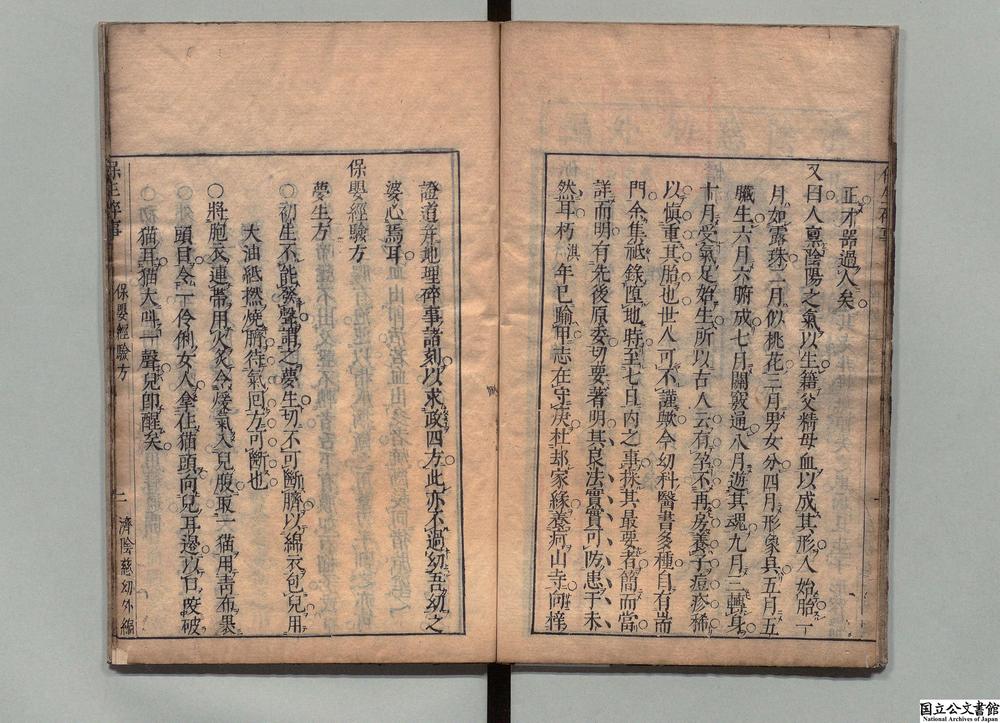 正才器過人矣
又曰人稟陰陽之氣以生籍父精母血以成其形人始胎一
月如露珠二月似桃花三月男女分四月形象具五月五
臟生六月六腑成七月關竅通八月遊其魂九月三轉身
十月受氣足始生所以古人云有孕不再房養子痘疹稀
以愼重其胎也世人可不謹歟今幼科醫書多種自有耑
門余集祗錄堕地時至七日內之事採其最要者簡而當
詳而明有先後原委切要著明其良法實實可防患于未
然耳朽滇年已踰甲志在守灰杜却家緣養疴山寺向梓
證道并地理碎事諸刻以求政四方此亦不過幼吾幼之
婆心焉耳
保嬰經驗方
夢生方
○初生不能發聲謂之夢生切不可斷臍以綿衣包兒用
大油紙撚燒臍待氣回方可斷也
○將胞衣連帶用火炙令煖氣入兒腹取一猫用靑布裹
○頭目令一伶俐女人拿住猫頭向兒耳邊以口咬破
○初猫耳猫大呌一聲兒卽醒矣
保生碎事
保嬰經驗方
二
濟陰慈幼外編
国立公文書館
National Archives of Japan